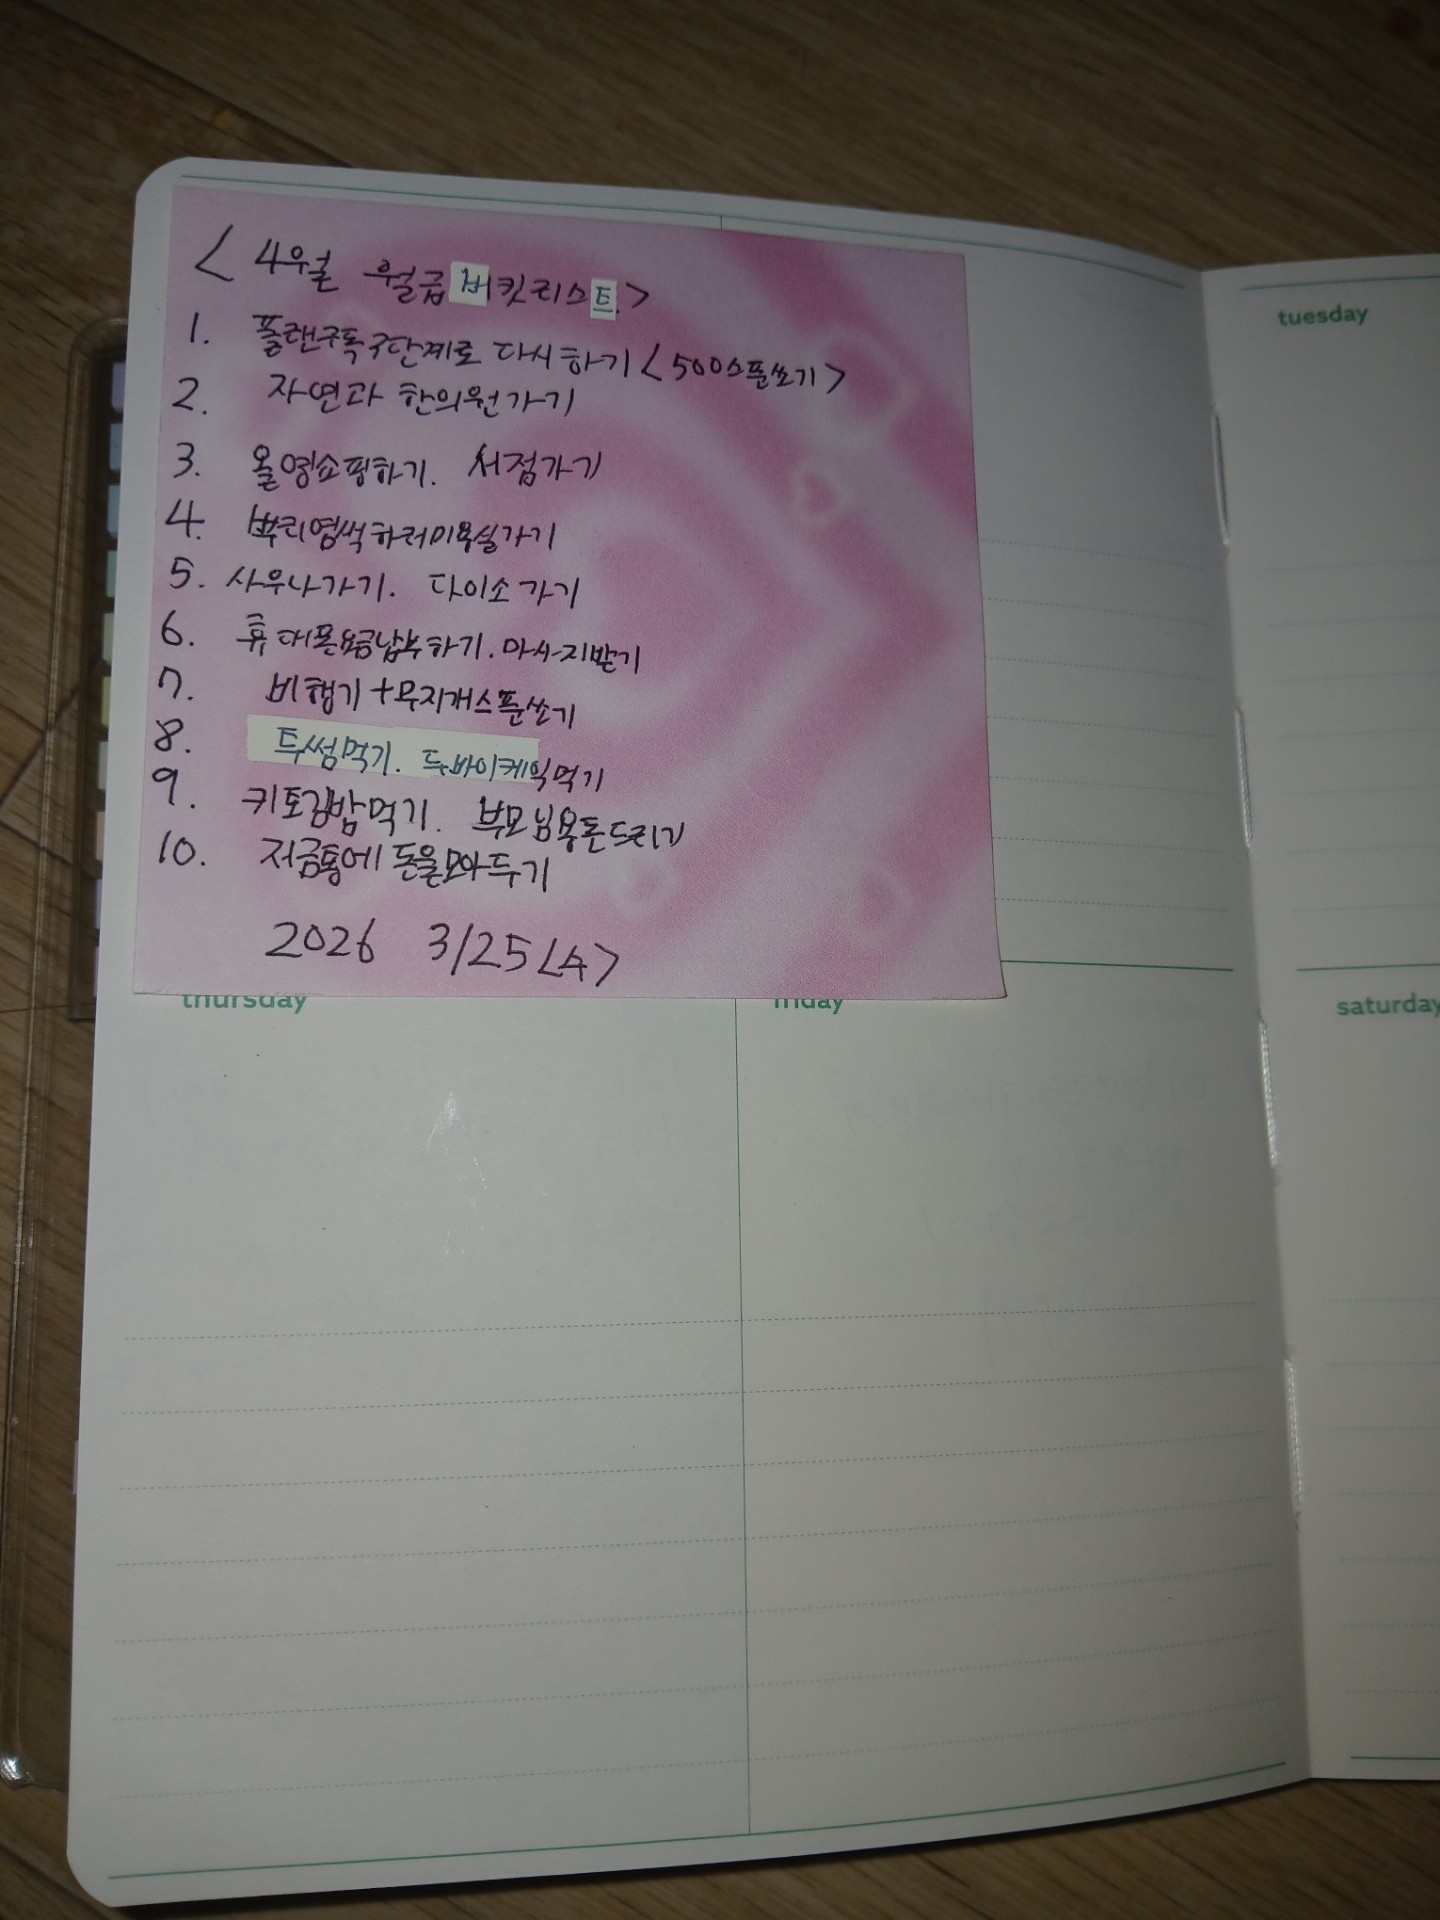 < 4월 월급 버킷리스트 >
1. 플랜구독 9단계로 다시하기 < 500스푼쏘기 >
2. 자연과 한의원가기
3. 올영쇼핑하기. 서점가기
4. 뿌리염색하러미용실가기
5. 사우나가기. 다이소가기
6. 휴대폰요금납부하기. 마사지받기
7. 비행기+무지개스푼쏘기
8. 투썸먹기. 두바이케익먹기
9. 키토김밥먹기. 부모님용돈드리기
10. 저금통에 돈을모아두기
2026 3/25 <수>
tuesday
thursday
friday
saturday